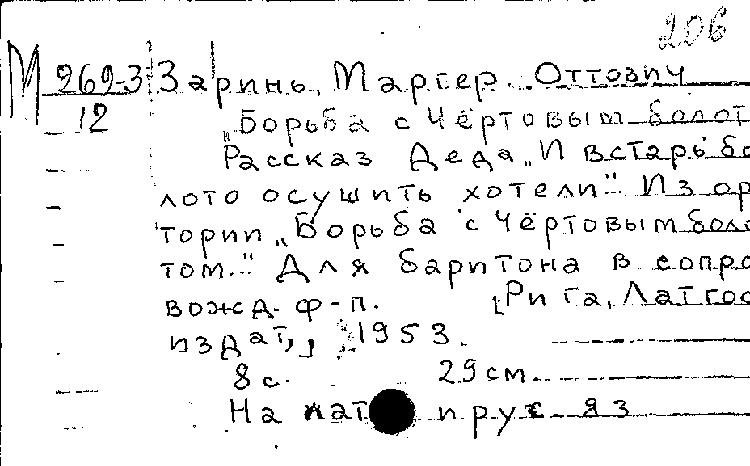 206
М 969-3 Заринь, Маргер Оттович
12
„Борьба с Чёртовым болот
Рассказ Деда „И встарь бо
лото осушить хотели". Из ор
тории „Борьба с Чёртовым боло
том." Для баритона в сопро
вожд. ф-п. [Рига, Латгос
издат,, 1953.
8 с. 29 см.
На лат и рус яз